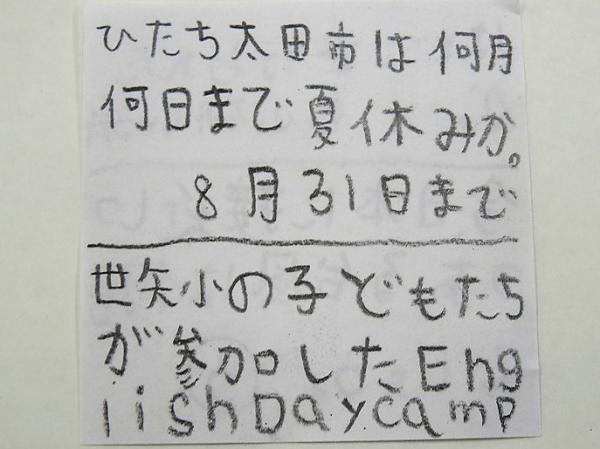 ひたち太田市は何月
何日まで夏休みか。
8月31日まで
世矢小の子どもたち
が参加したEng
lishDaycamp